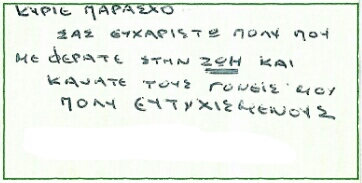 ΚΥΡΙΕ ΠΑΡΑΣΧΟ
ΣΑΣ ΕΥΧΑΡΙΣΤΩ ΠΟΛΥ ΠΟΥ
ΜΕ ΦΕΡΑΤΕ ΣΤΗΝ ΖΩΗ ΚΑΙ
ΚΑΝΑΤΕ ΤΟΥΣ ΓΟΝΕΙΣ ΜΟΥ
ΠΟΛΥ ΕΥΤΥΧΙΣΜΕΝΟΥΣ